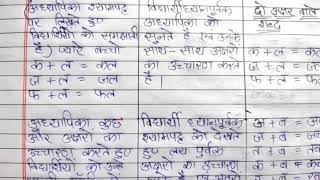 (अध्यापिका श्यामपट्ट
पर लिखते हुए
विद्यार्थियों को समझाती
है।) प्यारे बच्चों
क + ल = कल
ज + ल = जल
फ + ल = फल
विद्यार्थी ध्यानपूर्वक
अध्यापिका को
सुनते हैं एवं उनके
साथ-साथ अक्षरों
का उच्चारण करते
हैं।
दो अक्षर वाले
शब्द
क + ल =
ज + ल =
फ + ल =
अध्यापिका कुछ
और अक्षरों का
उच्चारण करते हुए
विद्यार्थियों को
विद्यार्थी ध्यानपूर्वक
श्यामपट्ट को देखते
हुए लय पूर्वक
अक्षरों का उच्चारण
ज + ल =
त + ब =